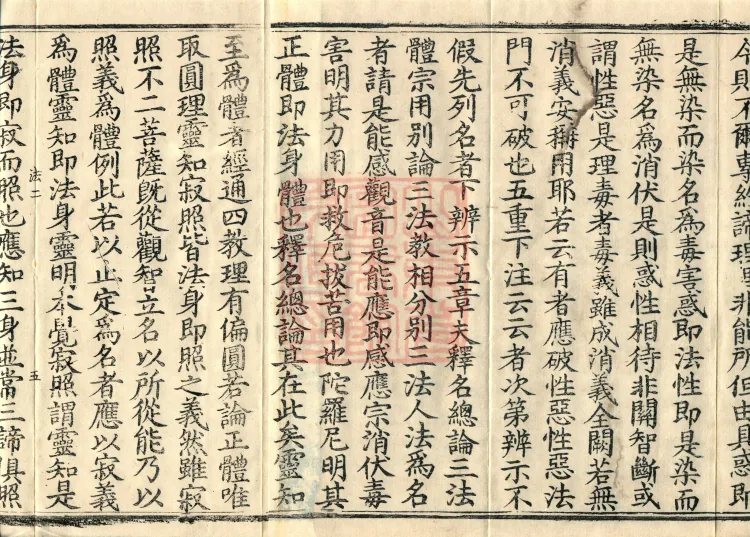 今則不爾專約諦理
是無染而染名為毒害惑即法性即是染而
無染名為消伏是則惑性相待非關智斷或
謂性惡是理毒者毒義雖成消義全闕若無
消義安稱用耶若云有者應破性惡性惡法
門不可破也五重下注云云者次第辨示不
假先列名者下辨示五章夫釋名總論三法
體宗用別論三法教相分別三法人法為名
者請是能感觀音是能應即感應宗消伏毒
害明其力用即救危拔苦用也陀羅尼明其
正體即法身體也釋名總論其在此矣靈知
至為體者經通四教理有偏圓若論正體唯
取圓理靈知寂照皆法身即照之義然雖寂
照不二菩薩既從觀智立名以所從能乃以
照義為體例此若以止定為名者應以寂義
為體靈知即法身靈明本覺寂照謂靈知是
法二
五
法身即寂而照也應知三身並常三諦俱照